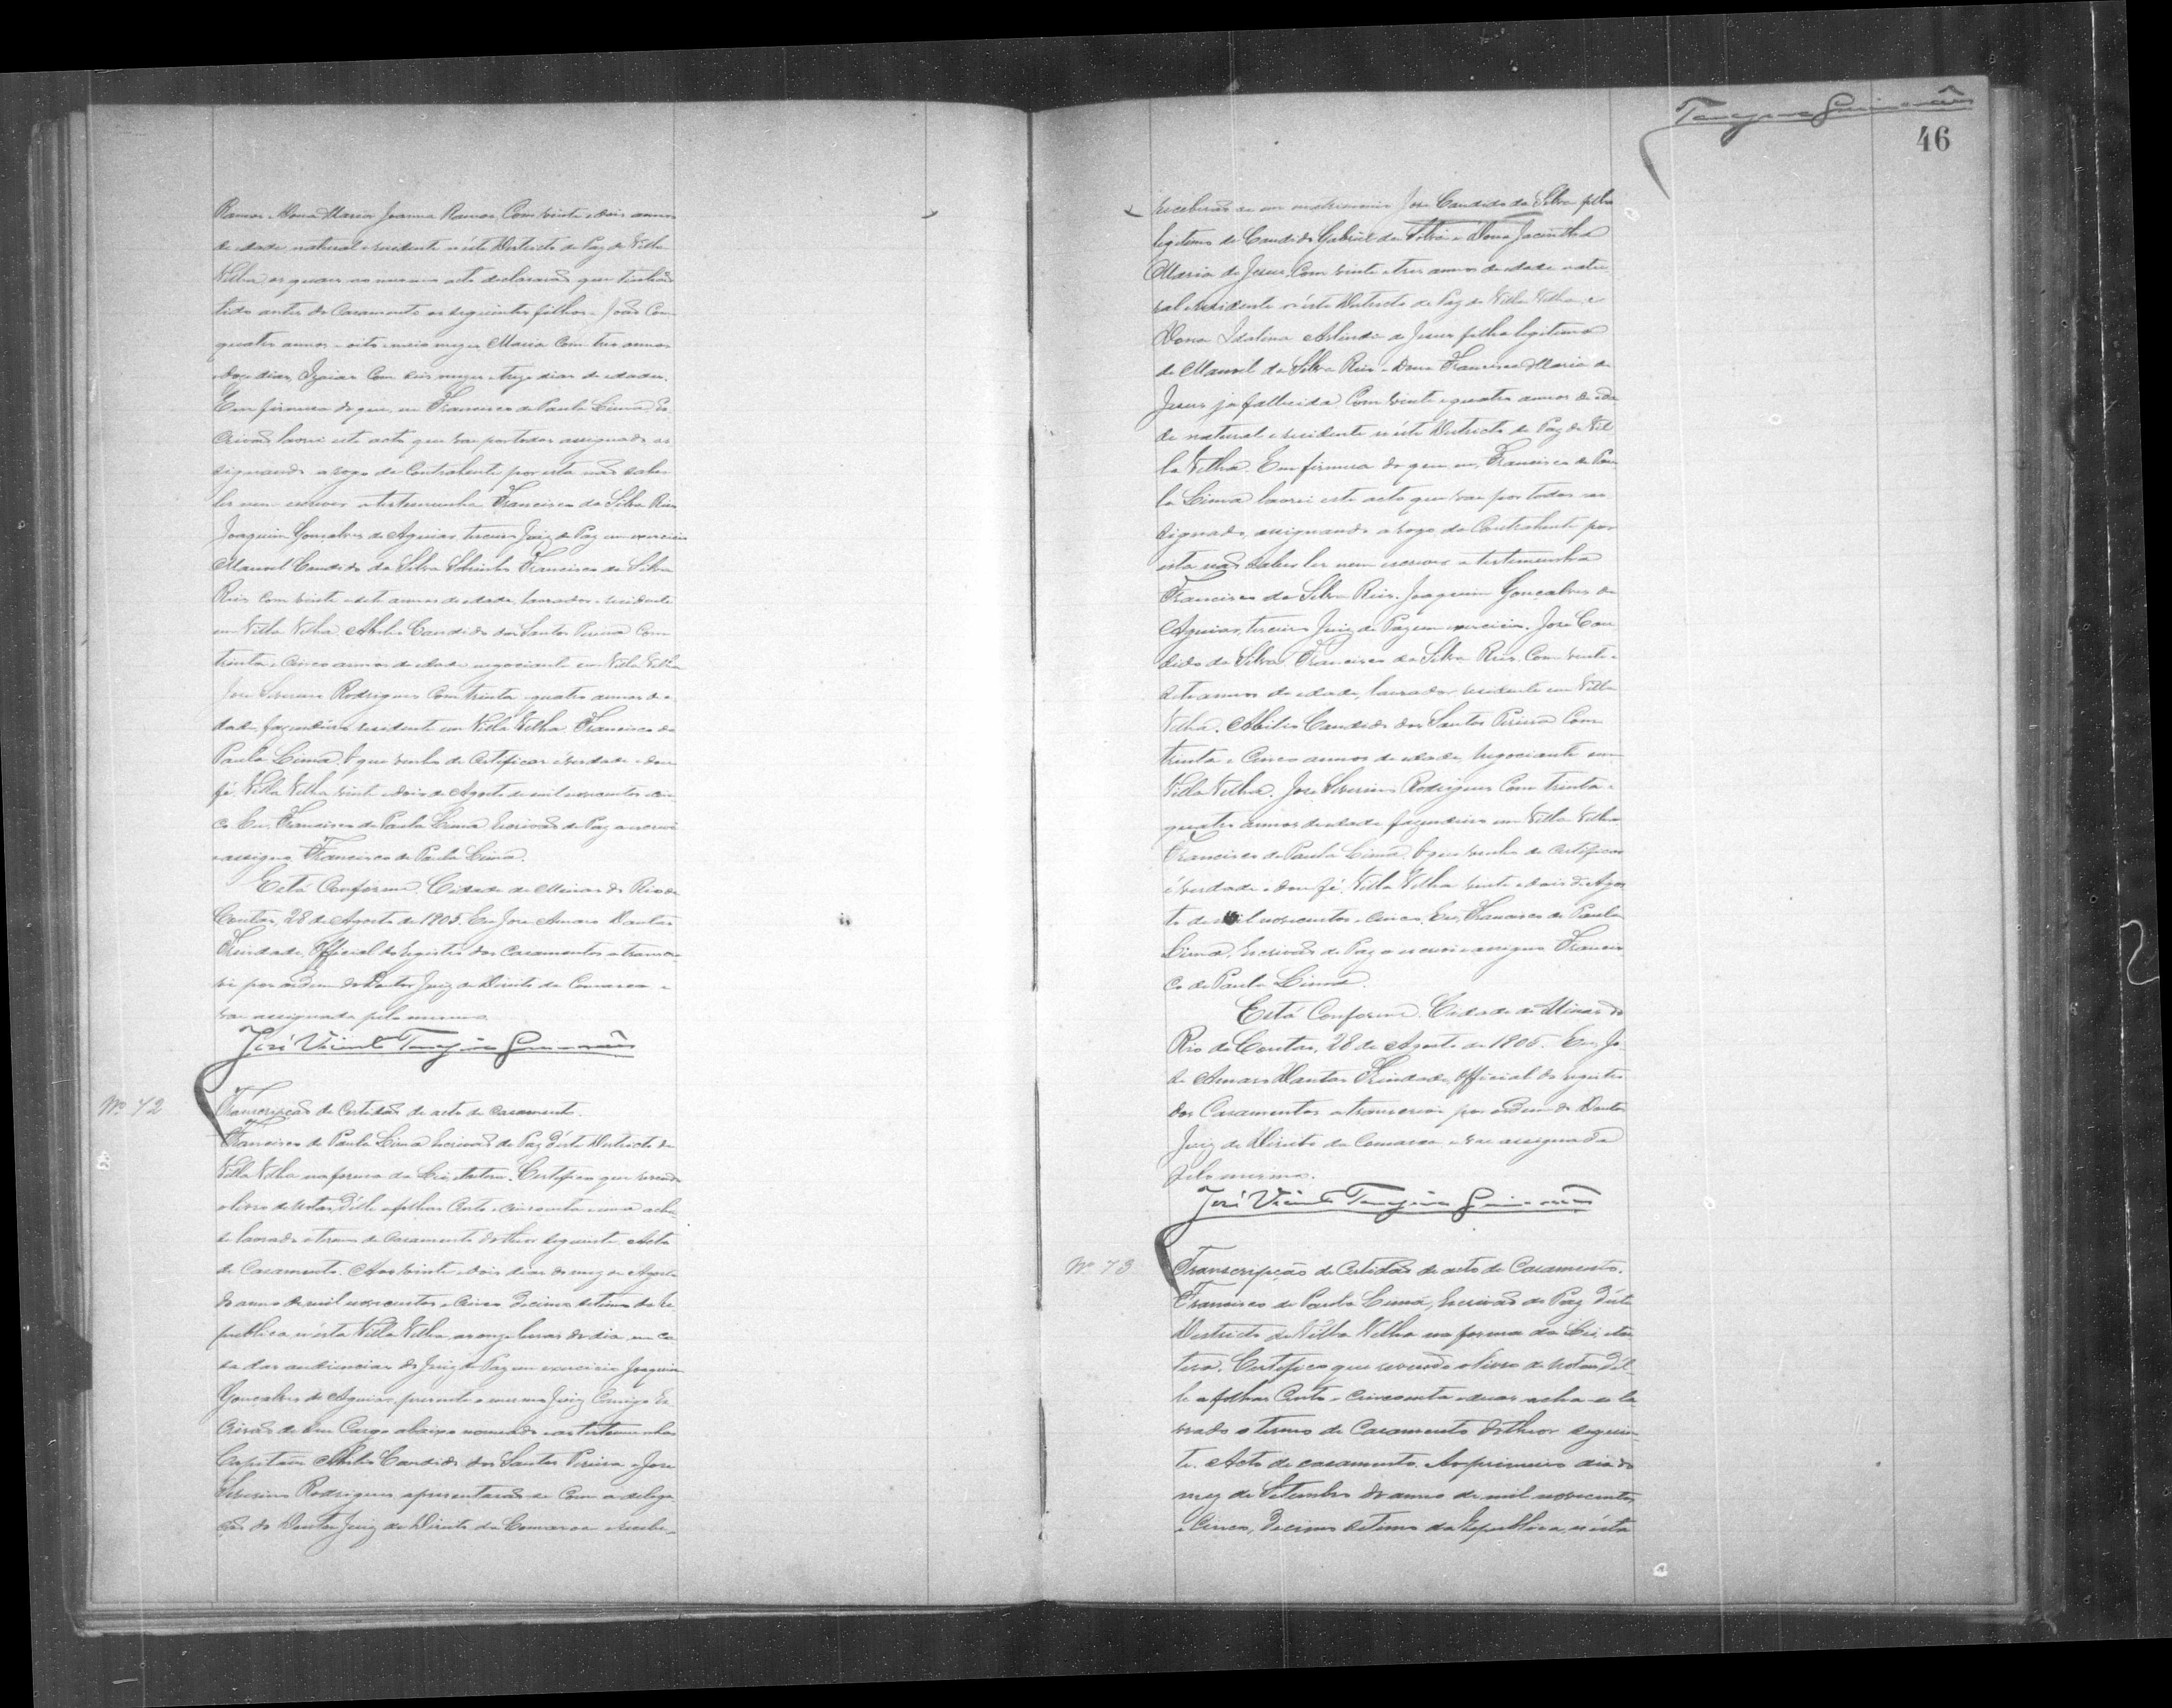 Ramos e Dona Maria Joanna Ramos. Com vinte e dois annos
de edade natural e residente n'este Districto de Paz de Villa
Velha os quaes no mesmo acto declararaõ que tinhaõ
tido antes do Casamento os seguintes filhos. Joaõ Com
quatro annos e oito e meio mezes Maria Com tres annos
e doze dias, Izaias Com seis mezes e treze dias de edades.
Em firmesa do que, eu Francisco de Paula Lima, Es-
crivaõ lavrei este acto que vae por todos assignado as-
signando a rogo da Contrahente, por esta naõ saber
ler nem escrever a testemunha Francisco da Silva Reis
Joaquim Gonçalves de Aguiar, terceiro Juiz de Paz em exercicio
Manoel Candido da Silva Sobrinho Francisco da Silva
Reis com vinte e sete annos de edade, lavrador e residente
em Villa Velha Abilio Candido dos Santos Pereira Com
trinta e Cinco annos de edade negociante em Villa Velha
José Severino Rodrigues Com trinta e quatro annos de e-
dade, fazendeiro residente em Villa Velha. Francisco de
Paula Lima. O que venho de Certificar é verdade e dou
fé. Villa Velha vinte e dois de Agosto de mil novecentos e cin-
co. Eu, Francisco de Paula Lima Escrivaõ de Paz o escrevi
e assigno. Francisco de Paula Lima.
Está Conforme. Cidade de Minas do Rio de
Contas, 28 de Agosto de 1905. Eu José Amaro Dantas
Trindade, Official do registro dos Casamentos a transcre-
vi por ordem do Doutor Juiz de Direito da Comarca e
vae assignada pelo mesmo.
José Vicente Tanajura Guimarães
Nº 72
Transcripçaõ de Certidaõ de acto de Casamento.
Francisco de Paula Lima Escrivaõ de Paz d'este Districto de
Villa Velha na forma da Lei etcetera. Certifico que revendo
o livro de notas d'elle a folhas Cento e cincoenta e uma acha-
se lavrado o termo de Casamento do theor seguinte. Acto
de Casamento. Aos vinte e dois dias do mez de Agosto
do anno de mil novecentos e Cinco decimo setimo da Re-
publica n'esta Villa Velha, as onze horas do dia, na ca-
sa das audiencias do Juiz de Paz em exercicio Joaquim
Gonçalves de Aguiar, presente o mesmo Juiz Comigo Es-
crivaõ de seu Cargo abaixo nomeado e as testemunhas
Capitaõ Abilio Candido dos Santos Pereira e José
Severino Rodrigues apresentaraõ-se Com a delega-
çaõ do Doutor Juiz de Direito da Comarca e recebe-
Tanajura Guimarães
46
receberaõ-se em matrimonio José Candido da Silva filho
legitimo de Candido Gabriel da Silva e Dona Jacintha
Maria de Jesus, Com vinte e tres annos de edade natu-
ral e residente n'este Districto de Paz de Villa Velha, e
Dona Idalina de Jesus filha legitima
de Manoel da Silva Reis e Dona Francisca Maria de
Jesus já fallecida Com vinte e quatro annos de eda-
de natural e residente n'este Districto de Paz de Vil-
la Velha. Em firmesa do que eu, Francisco de Pau-
la Lima lavrei este acto que vae por todos as-
signado, assignando a rogo da Contrahente por
esta naõ saber ler nem escrever a testemunha
Francisco da Silva Reis. Joaquim Gonçalves de
Aguiar, terceiro Juiz de Paz em exercicio. José Can-
dido da Silva. Francisco da Silva Reis. Com vinte e
sete annos de edade, lavrador residente em Villa
Velha. Abilio Candido dos Santos Pereira Com
trinta e Cinco annos de edade, negociante em
Villa Velha. José Severino Rodrigues Com trinta e
quatro annos de edade fazendeiro em Villa Velha
Francisco de Paula Lima. O que venho de certificar
é verdade e dou fé. Villa Velha vinte e dois de Agos-
to de mil novecentos e cinco. Eu, Francisco de Paula
Lima, Escrivaõ de Paz o escrevi e assigno Francis-
co de Paula Lima.
Está Conforme. Cidade de Minas do
Rio de Contas, 28 de Agosto de 1905. Eu, Jo-
sé Amaro Dantas Trindade, Official do registro
dos Casamentos a transcrevi por ordem do Doutor
Juiz de Direito da Comarca e vae assignada
pelo mesmo.
José Vicente Tanajura Guimarães
Nº 73
Transcripçaõ de Certidaõ de acto de Casamento.
Francisco de Paula Lima, Escrivaõ de Paz d'este
Districto de Villa Velha na forma da Lei etce-
tera. Certifico que revendo o livro de notas d'el-
le a folhas Cento e Cincoenta e duas acha-se la-
vrado o termo de Casamento do theor seguin-
te. Acto de casamento. Ao primeiro dia do
mez de Setembro do anno de mil novecentos
e Cinco, decimo setimo da Republica, n'esta